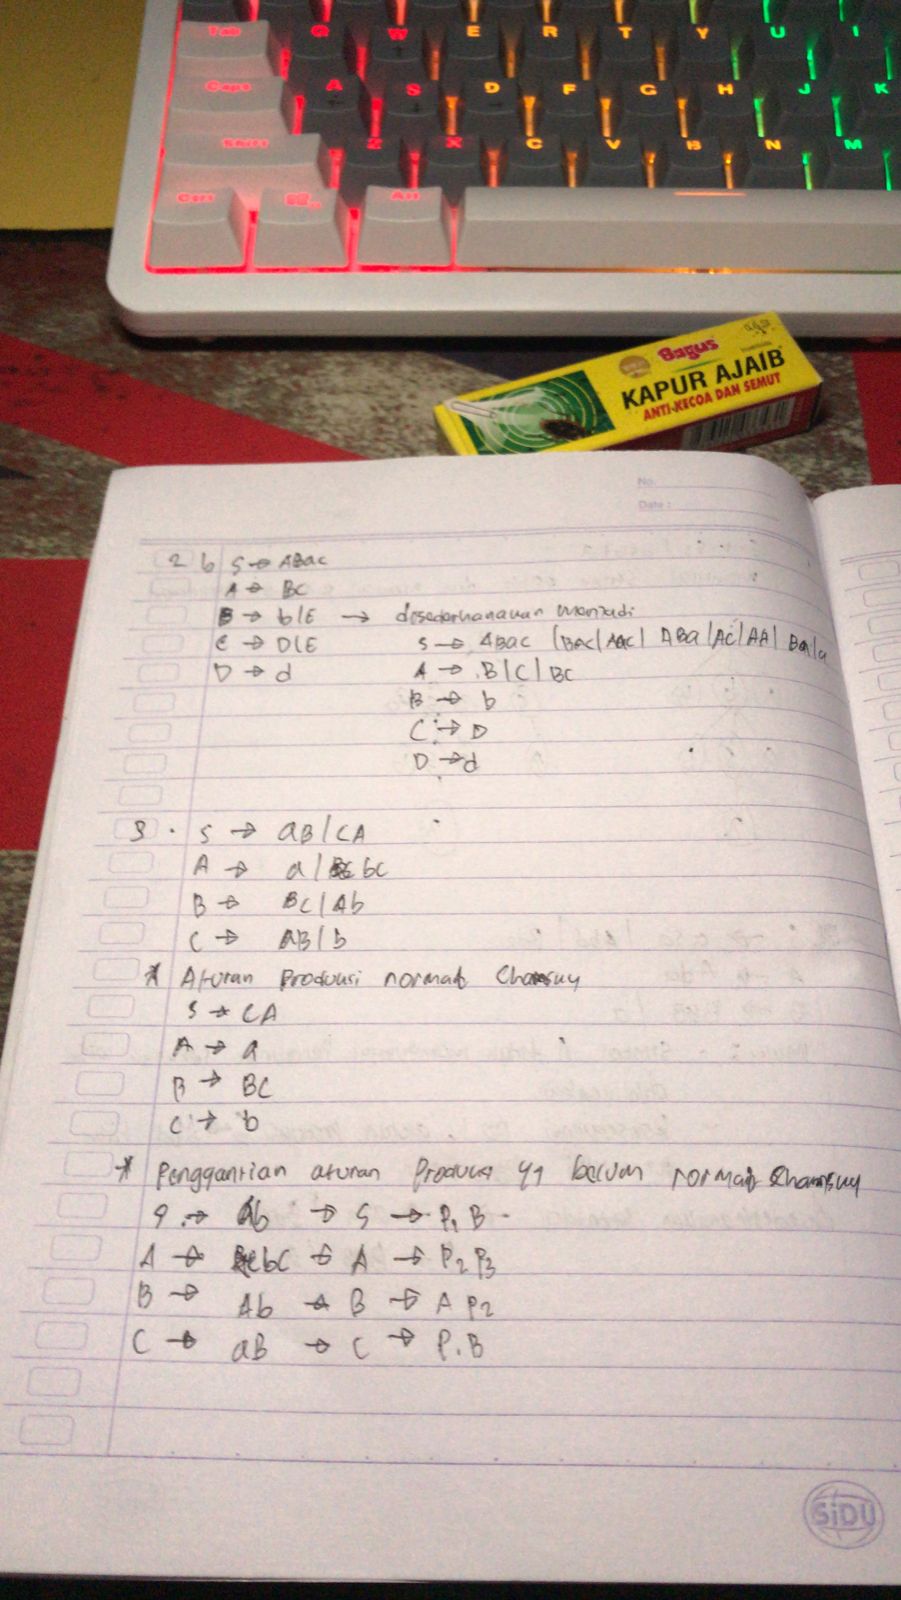 Tab Q W E R T Y U I
Caps A S D F G H J K
Shift Z X C V B N M
Ctrl Alt
Bagus
KAPUR AJAIB
ANTI-KECOA DAN SEMUT
No.
Date :
2 b S → ABac
A → BC
B → b|E → disederhanakan menjadi
C → D|E S → ABac |BAC|AAC| ABa|AC|AA| Ba|a
D → d A → B|C|BC
B → b
C → D
D → d
3 . S → aB|CA
A → a|bc
B → BC|Ab
C → aB|b
* Aturan Produksi normat Chomsky
S → CA
A → a
B → BC
C → b
* Penggantian aturan Produksi yg belum normat Chomsky
S → Ab → S → P1 B
A → bC → A → P2 P3
B → Ab → B → A P2
C → aB → C → P1 B
SiDU